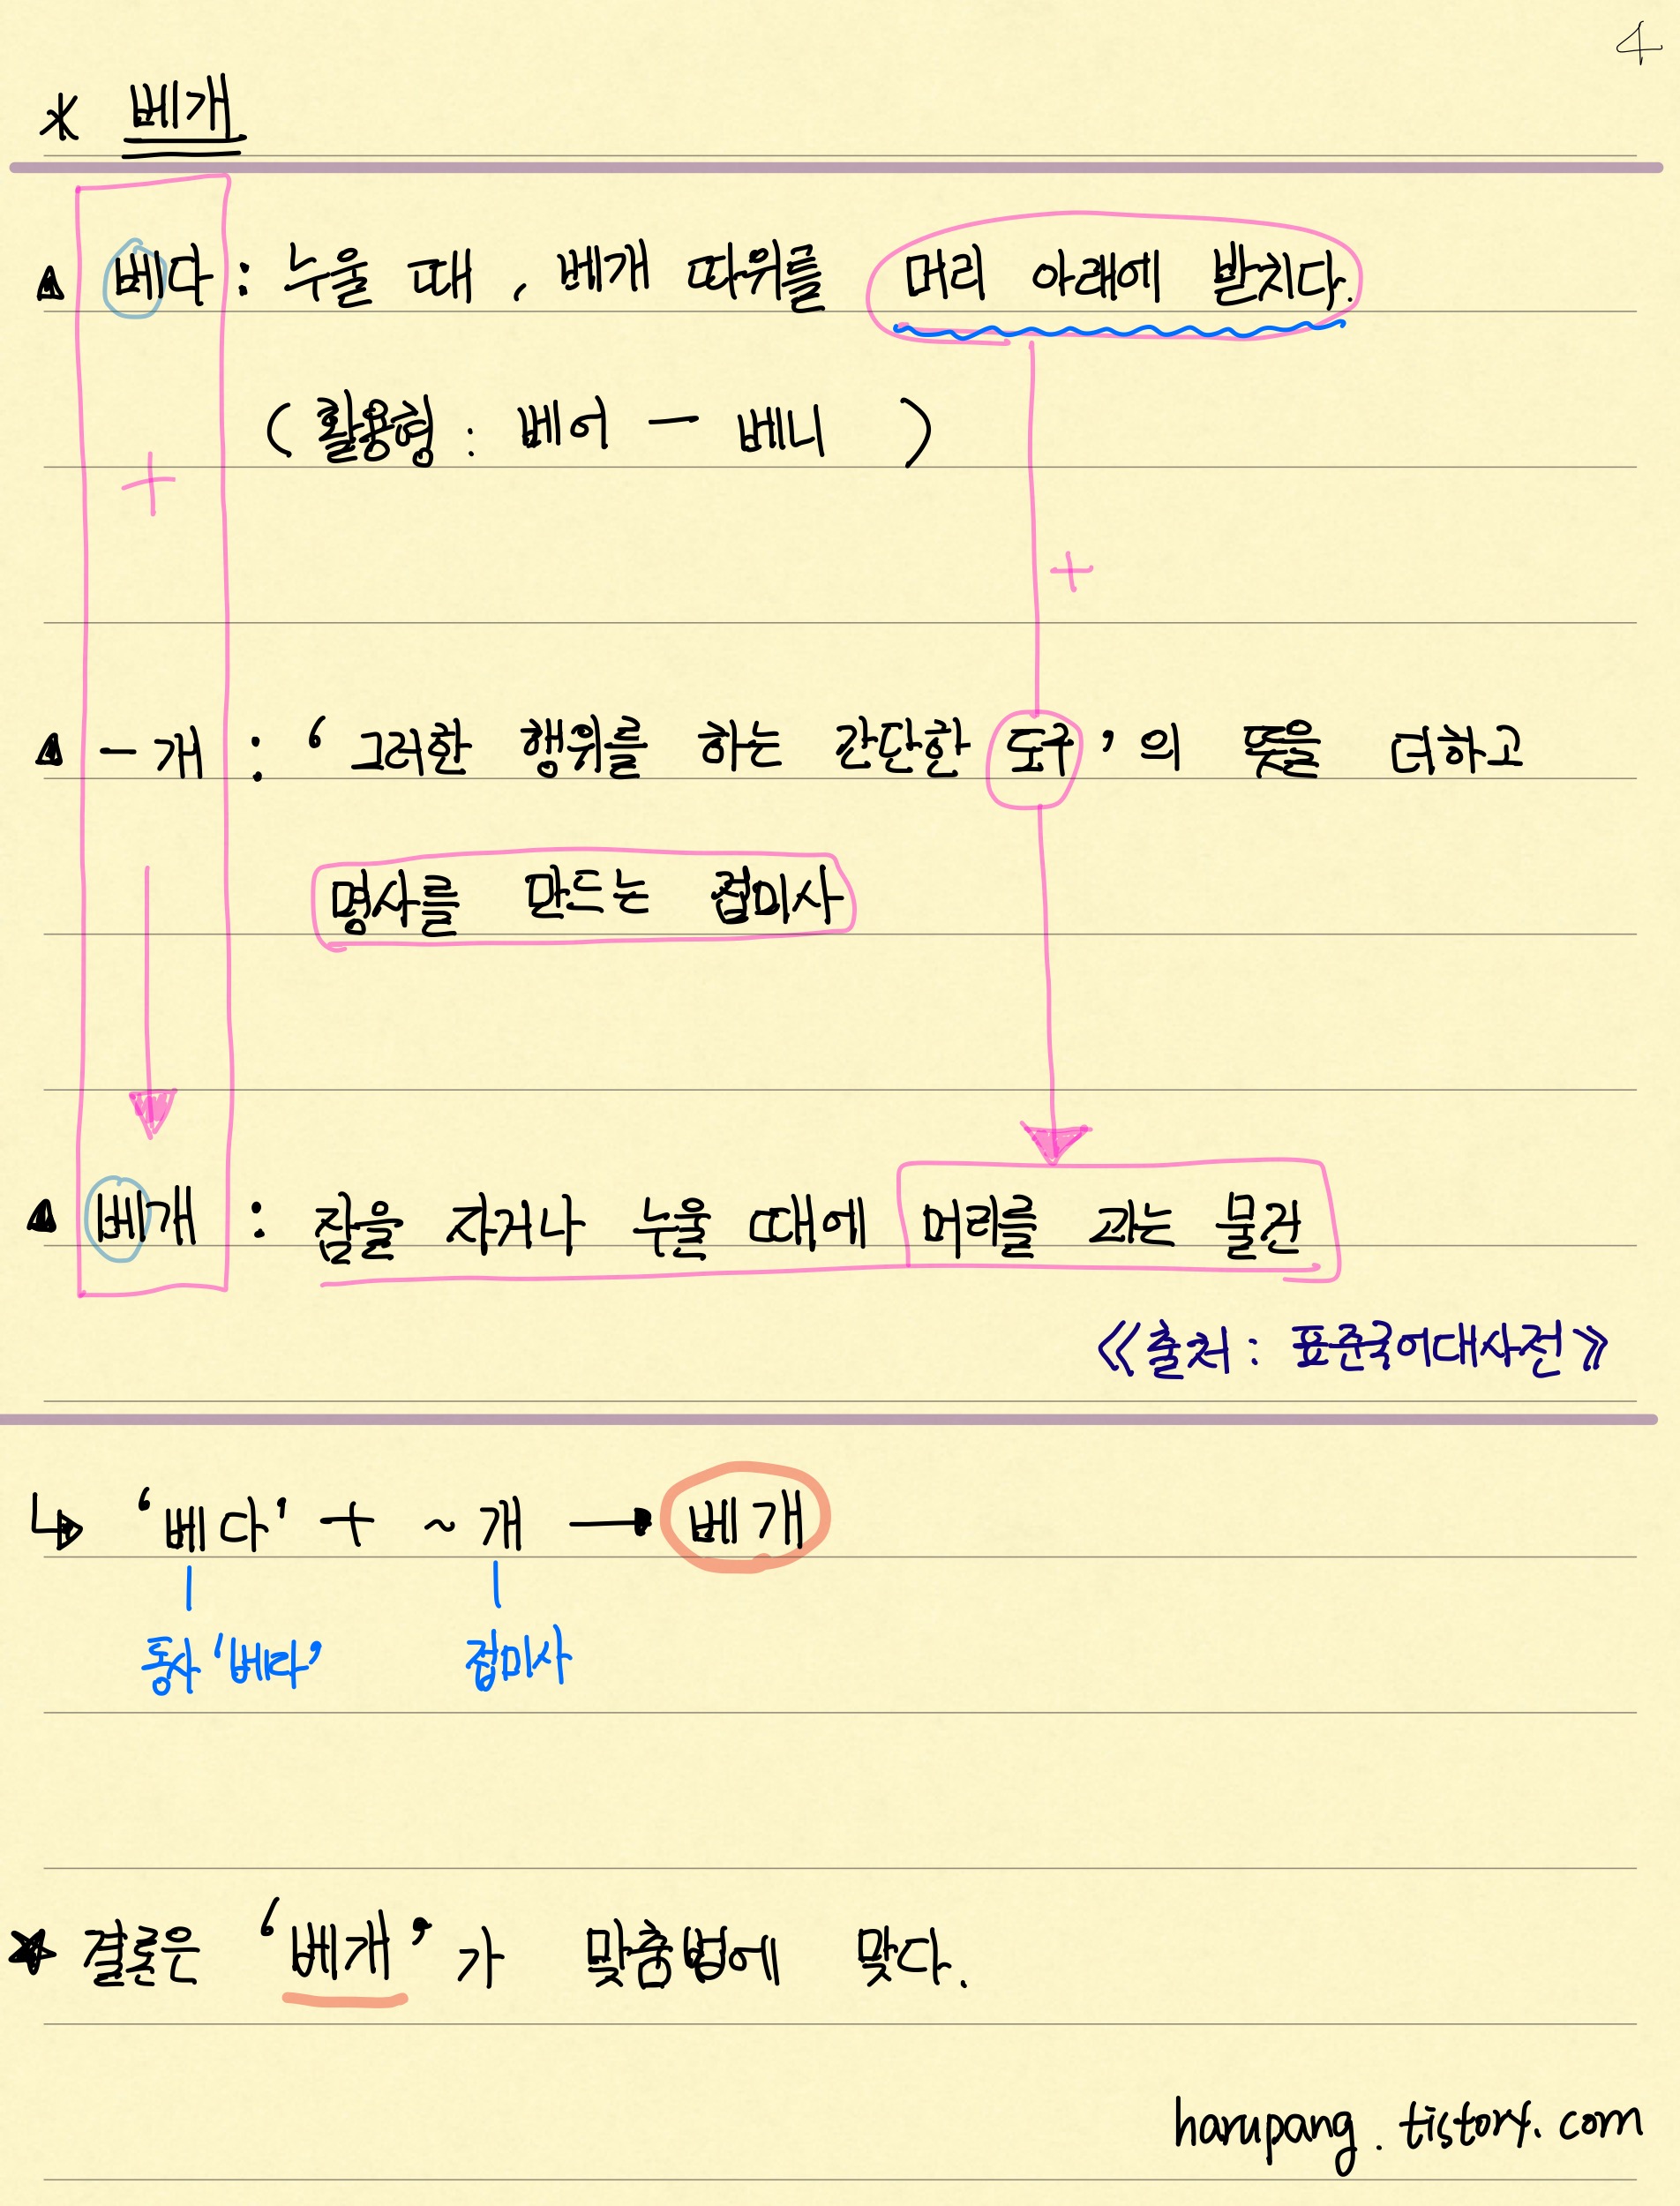 4
* 베개
베다 : 누울 때, 베개 따위를 머리 아래에 받치다.
(활용형 : 베어 - 베니 )
+
+
-개 : ‘그러한 행위를 하는 간단한 도구’의 뜻을 더하고
명사를 만드는 접미사
베개 : 잠을 자거나 누울 때에 머리를 괴는 물건
《출처 : 표준국어대사전》
‘베다’ + ~개 → 베개
동사 ‘베다’ 접미사
★ 결론은 ‘베개’가 맞춤법에 맞다.
harupang.tistory.com